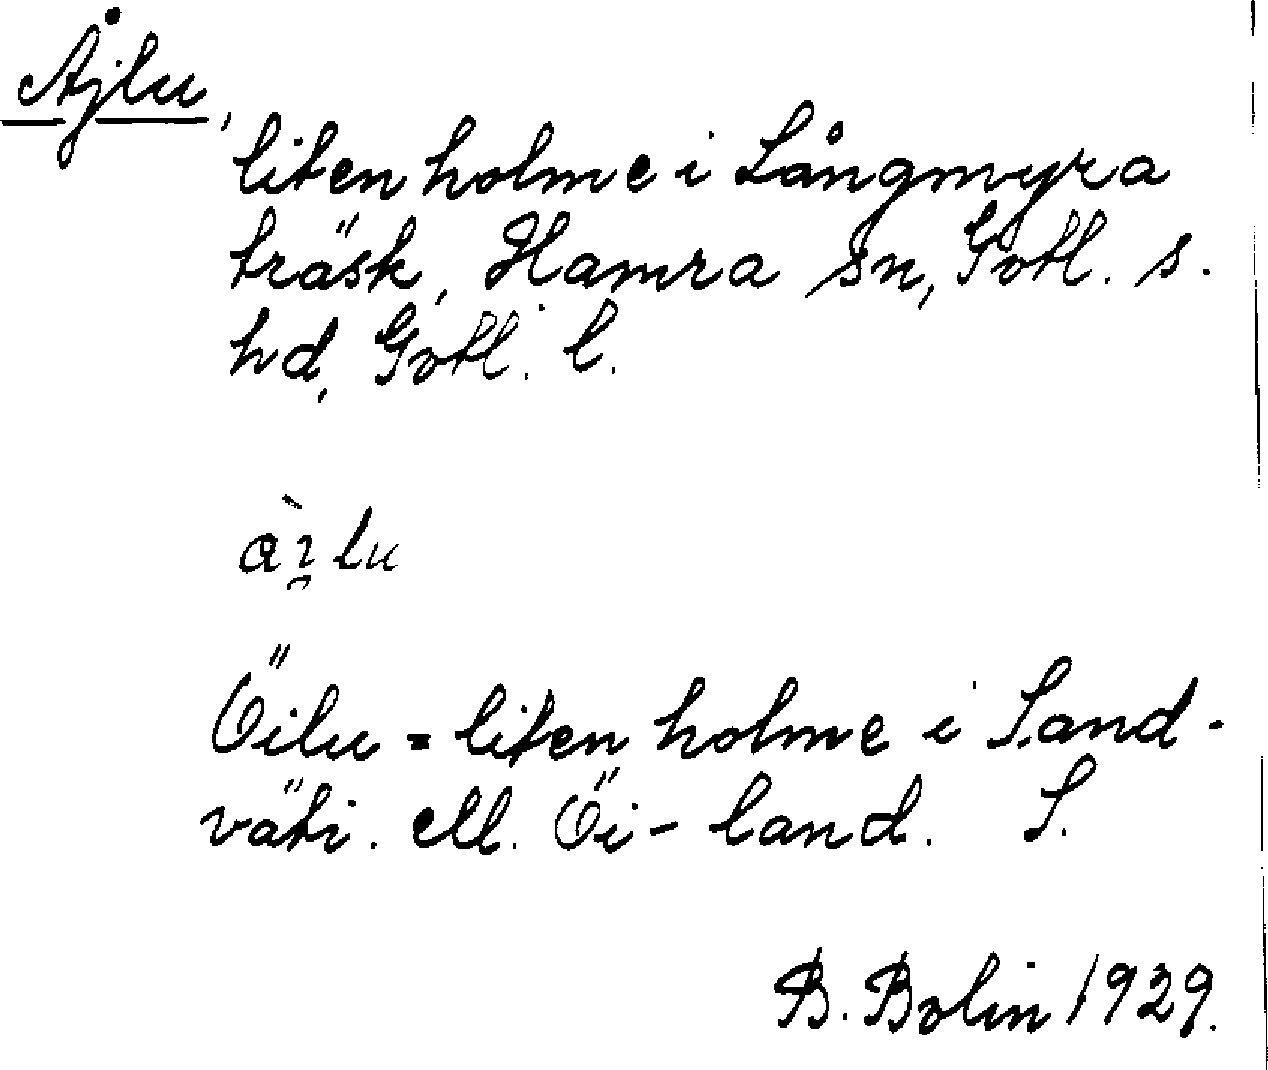 Åjlu,
liten holme i Långmyra
träsk, Hamra sn, Gotl. s.
hd, Gotl. l.
Öilu = liten holme i Sand-
väti. ell. Öi-land. S.
B. Bolin 1929.